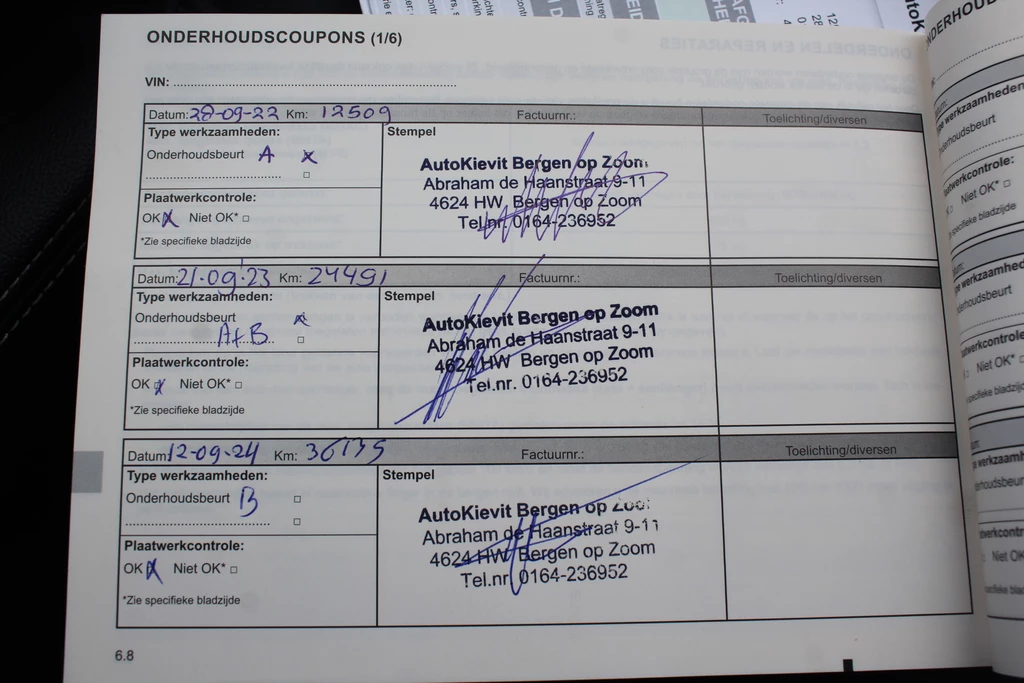 ONDERHOUDSCOUPONS (1/6)
VIN:
Datum: 28-09-22 Km: 12509 Factuurnr.: Toelichting/diversen
Type werkzaamheden:
Onderhoudsbeurt A x
Plaatwerkcontrole:
OK x Niet OK* □
*Zie specifieke bladzijde
Stempel
AutoKievit Bergen op Zoom
Abraham de Haanstraat 9-11
4624 HW Bergen op Zoom
Tel.nr. 0164-236952
Datum: 21-09-23 Km: 24491 Factuurnr.: Toelichting/diversen
Type werkzaamheden:
Onderhoudsbeurt x
A+B
Plaatwerkcontrole:
OK x Niet OK* □
*Zie specifieke bladzijde
Stempel
AutoKievit Bergen op Zoom
Abraham de Haanstraat 9-11
4624 HW Bergen op Zoom
Tel.nr. 0164-236952
Datum: 12-09-24 Km: 36135 Factuurnr.: Toelichting/diversen
Type werkzaamheden:
Onderhoudsbeurt B □
Plaatwerkcontrole:
OK x Niet OK* □
*Zie specifieke bladzijde
Stempel
AutoKievit Bergen op Zoom
Abraham de Haanstraat 9-11
4624 HW Bergen op Zoom
Tel.nr. 0164-236952
6.8